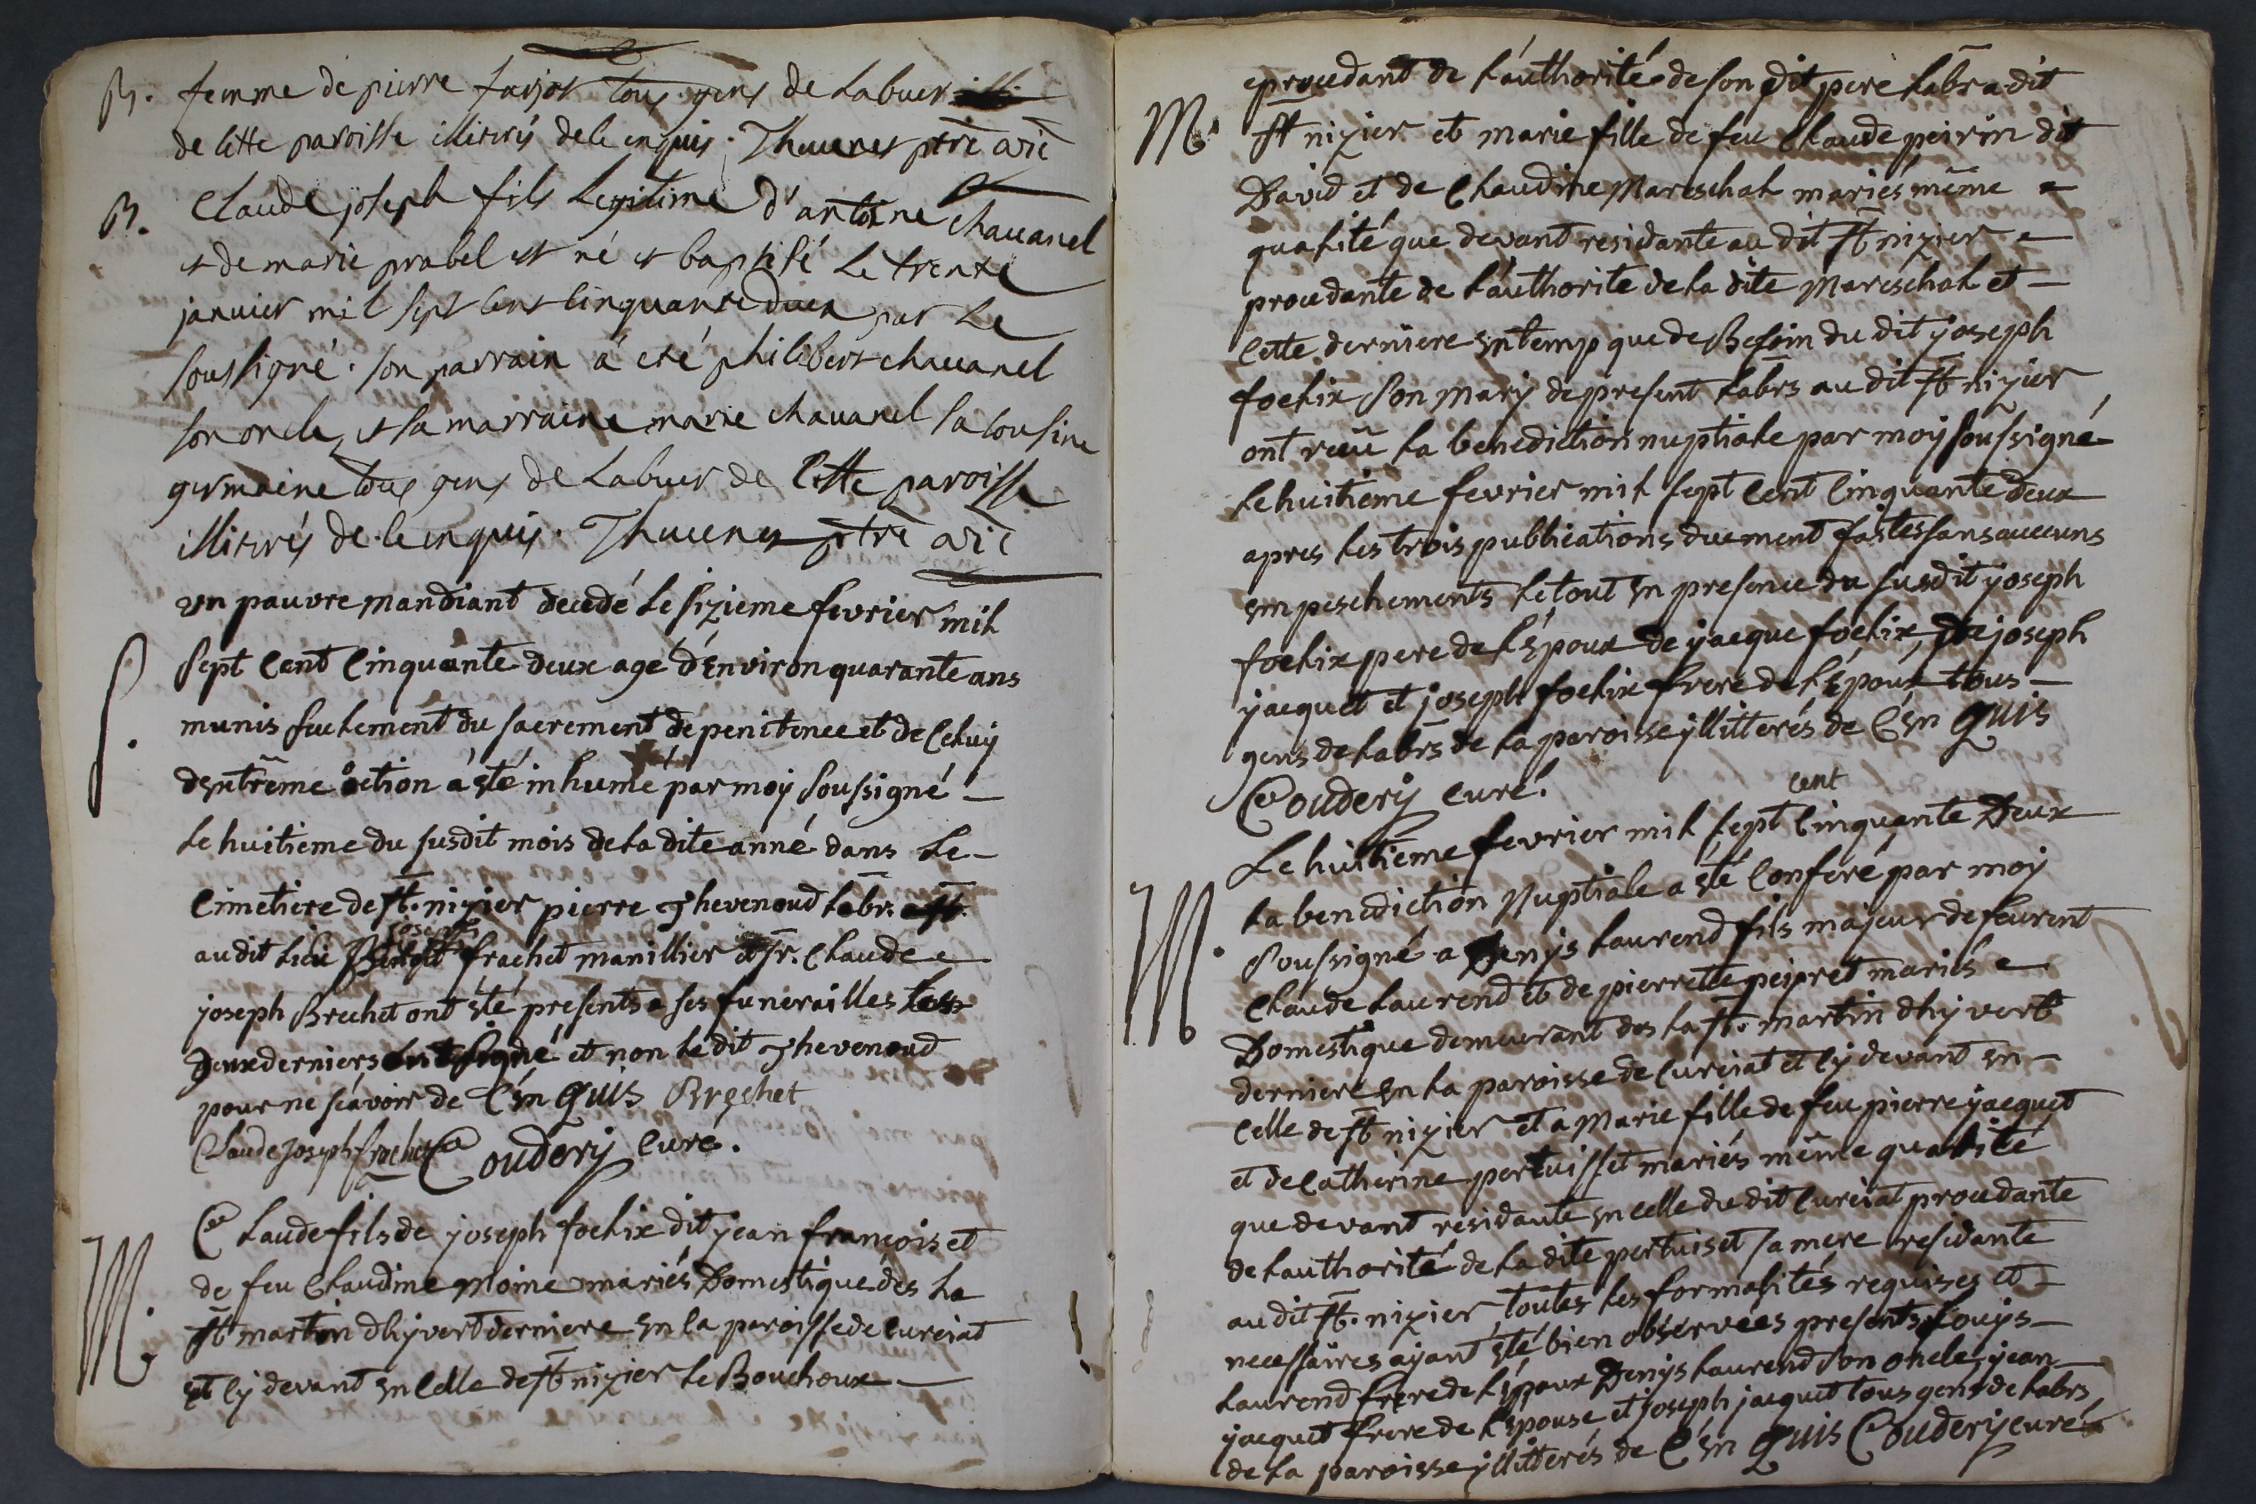 B. femme de pierre farjot tous gens de Labeur
de cette paroisse illiterés de ce enquis. Thuuenet ptre vic̄
B. Claude joseph fils Legitime d'antoine chauanel
et de marie prabel est né et baptisé Le trente
janvier mil sept cent cinquante deux par Le
soussigné. son parrain à eté philibert chauanel
son oncle, et sa marraine marie chauanel sa cousine
germaine tous gens de Labeur de cette paroisse
illiterés de ce enquis. Thuuenet ptre vic̄
S. un pauvre mandiant decedé Le sizieme fevrier mil
sept Cent Cinquante deux agé d'Environ quarante ans
munis seulement du sacrement de penitence et de Celuy
d'extrême onction à été inhumé par moy soussigné
Le huitieme du susdit mois de La dite anné dans Le
Cimetiere de st. nizier pierre Thevenoud Labr.
au dit Lieu joseph frachet manillier et sr. Claude
joseph Brechet ont été presents a ses funerailles Les
deux derniers ont signé et non Le dit Thevenoud
pour ne sçavoir de C'en quis Brechet
Claude joseph frachet Coudery Curé.
M. Claude fils de joseph foelix dit jean françois et
de feu Claudine Moine mariés Domestique des La
st martin dhyvert derniere en la paroisse de Curciat
et Cy devant en Celle de st nizier Le Bouchoux
procedant de L'authorité de son dit pere Labr a dit
M. st nizier et marie fille de feu Claude peirin dit
David et de Claudine Mareschal mariés même
qualité que devant residante au dit st nizier
procedante de L'authorite de La dite Mareschal et
Cette derniere en temp que de Besoin du dit joseph
foelix son Mary de present Labrs au dit st nizier
ont reçû La benediction nuptiale par moy soussigné
Le huitieme fevrier mil sept Cent Cinquante deux
apres Les trois publications duement faites sans aucuns
empeschements Le tout en presence du susdit joseph
foelix pere de L'époux de jacque foelix, de joseph
jacquet et joseph foelix frere de L'époux tous
gens de Labrs de La paroisse jllitterés de C'en quis
Coudery Curé.
M. Le huitieme fevrier mil sept cent Cinquante Deux
La benediction Nuptiale a été Conferé par moy
soussigné a Denys Laurend fils majeur de feurent
Claude Laurend et de pierrette peipret mariés
Domestique demeurant des La st. martin dhyvert
derniere en La paroisse de Curciat et Cy devant en
Celle de st nizier et a Marie fille de feu pierre jacquet
et de Catherine pertuisset mariés même qualité
que devant residante en celle du dit Curciat procedante
de Lauthorité de La dite pertuiset sa mere residante
au dit st. nizier, toutes Les formalités requises et
necessaires ayant été bien observées presents Louys
Laurend frere de L'époux Denys Laurend son oncle, jean
jacquet frere de L'epouse et joseph jacquet tous gens de Labrs
de La paroisse jllitterés de C'en quis Coudery curé